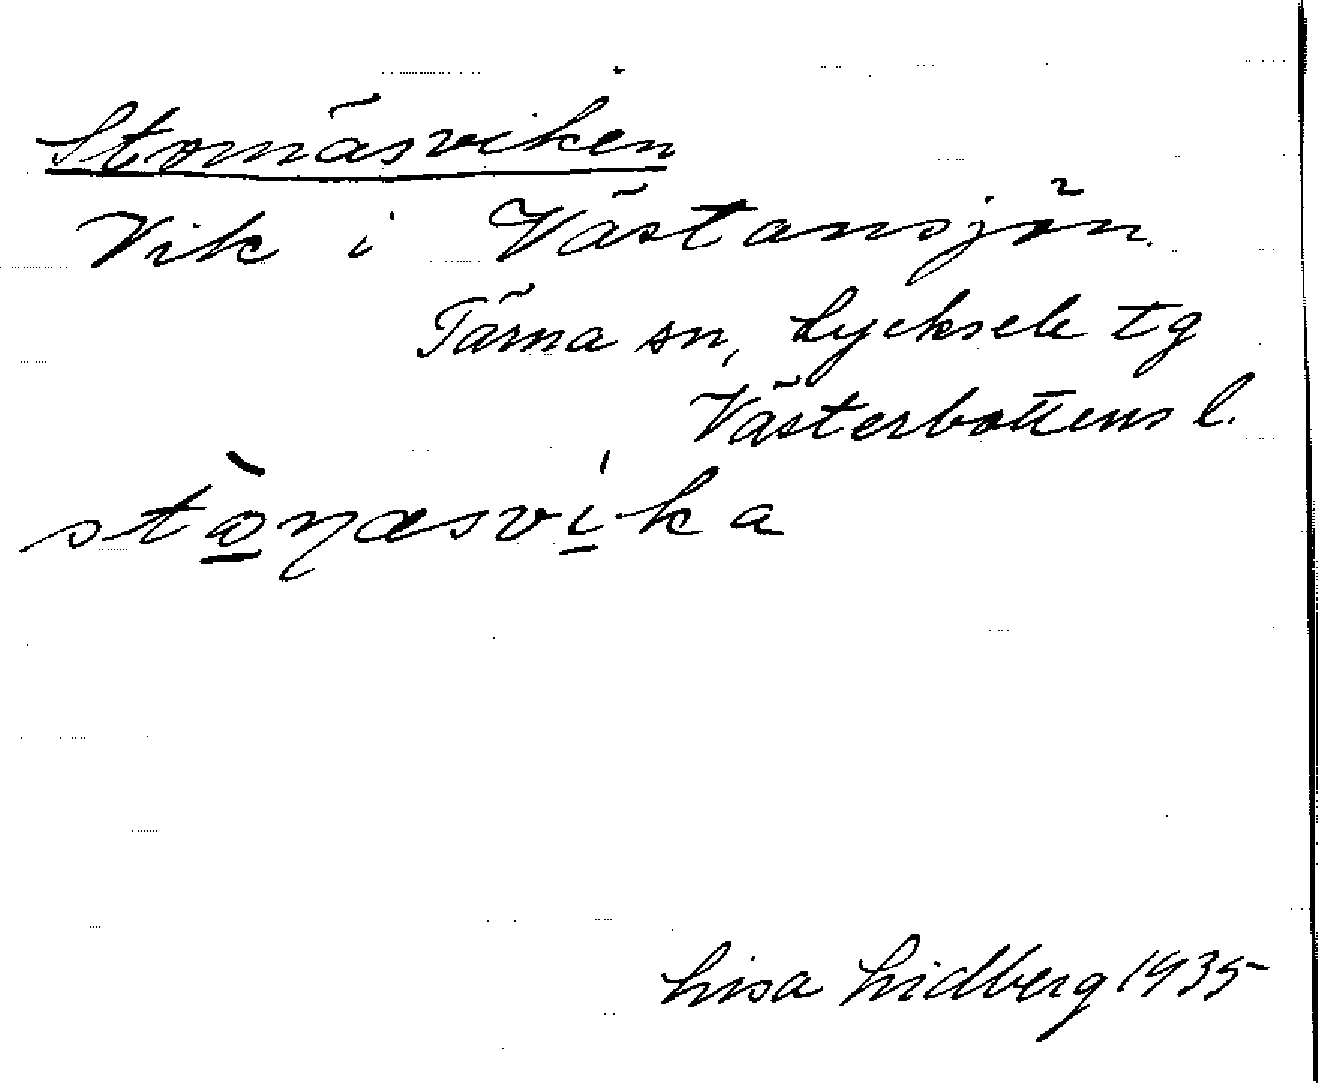 Stornäsviken
Vik i Västansjön.
Tärna sn, Lycksele tg
Västerbottens l.
stò̲ɳæsví̲ka
Lisa Lidberg 1935